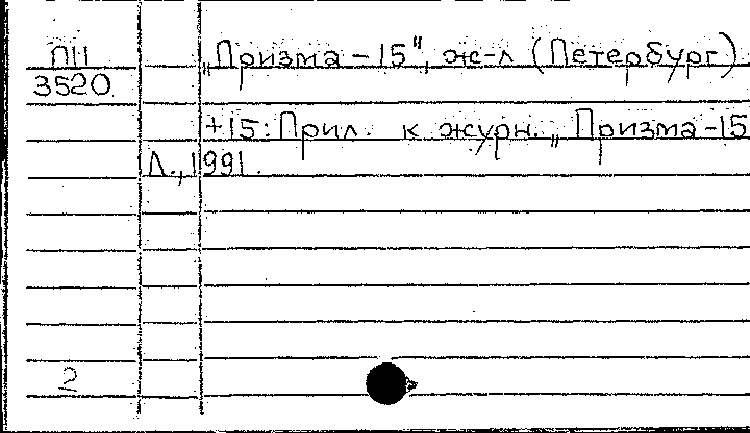 П11
3520.
„Призма – 15", ж-л (Петербург)
+15: Прил. к журн. „Призма-15
Л., 1991.
2